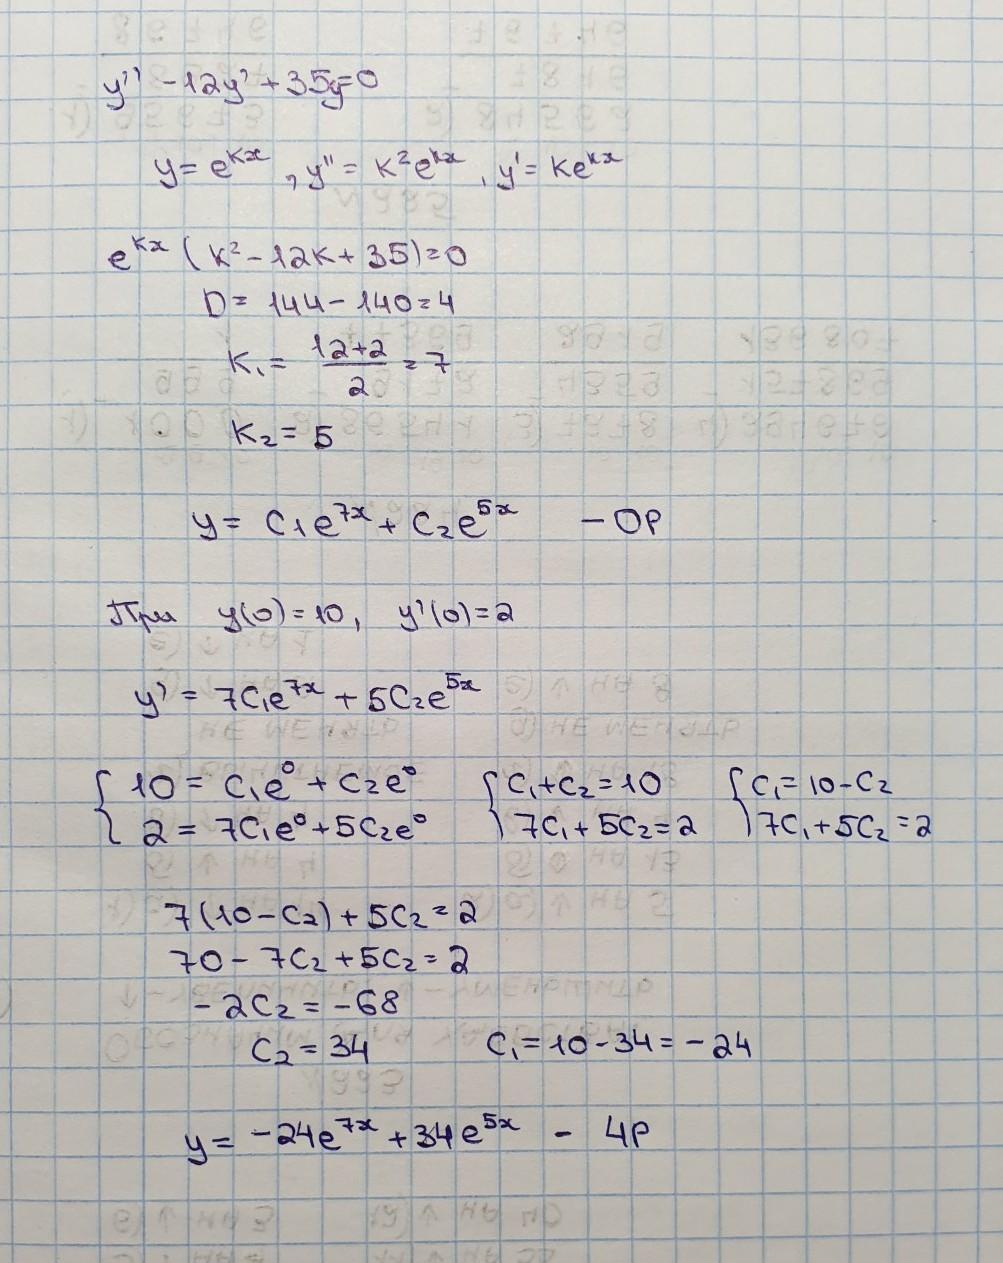 y'' - 12y' + 35y = 0
y = e^{kx}, y'' = k²e^{kx}, y' = ke^{kx}
e^{kx} (k² - 12k + 35) = 0
D = 144 - 140 = 4
K₁ = (12+2)/2 = 7
K₂ = 5
y = C₁e^{7x} + C₂e^{5x} - ОР
При y(0) = 10, y'(0) = 2
y' = 7C₁e^{7x} + 5C₂e^{5x}
{10 = C₁e⁰ + C₂e⁰ {C₁ + C₂ = 10 {C₁ = 10 - C₂
2 = 7C₁e⁰ + 5C₂e⁰ 7C₁ + 5C₂ = 2 7C₁ + 5C₂ = 2
7(10 - C₂) + 5C₂ = 2
70 - 7C₂ + 5C₂ = 2
- 2C₂ = - 68
C₂ = 34 C₁ = 10 - 34 = - 24
y = -24e^{7x} + 34e^{5x} - ЧР